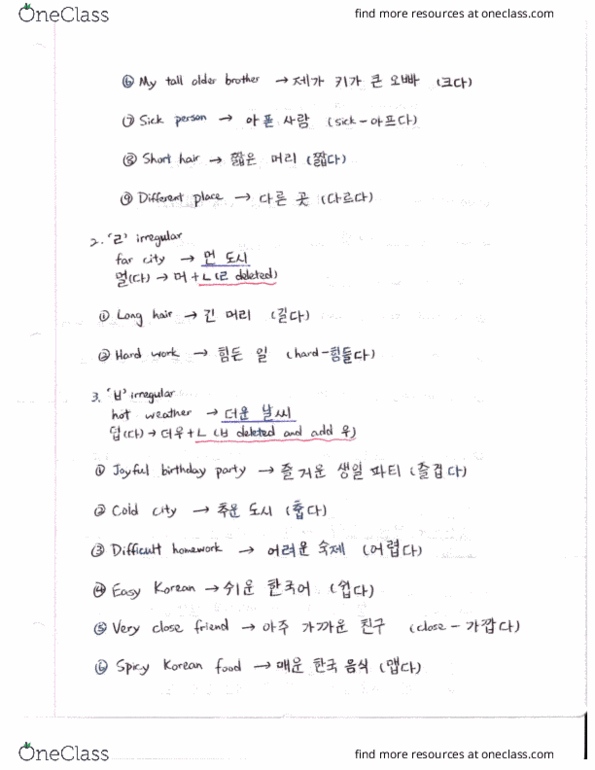 OneClass
find more resources at oneclass.com
⑥ My tall older brother → 제가 키가 큰 오빠 (크다)
⑦ Sick person → 아픈 사람 (sick - 아프다)
⑧ Short hair → 짧은 머리 (짧다)
⑨ Different place → 다른 곳 (다르다)
2. 'ㄹ' irregular
far city → 먼 도시
멀(다) → 머 + ㄴ (ㄹ deleted)
① Long hair → 긴 머리 (길다)
② Hard work → 힘든 일 (hard - 힘들다)
3. 'ㅂ' irregular
hot weather → 더운 날씨
덥(다) → 더우 + ㄴ (ㅂ deleted and add 우)
① Joyful birthday party → 즐거운 생일 파티 (즐겁다)
② Cold city → 추운 도시 (춥다)
③ Difficult homework → 어려운 숙제 (어렵다)
④ Easy Korean → 쉬운 한국어 (쉽다)
⑤ Very close friend → 아주 가까운 친구 (close - 가깝다)
⑥ Spicy Korean food → 매운 한국 음식 (맵다)
OneClass
find more resources at oneclass.com